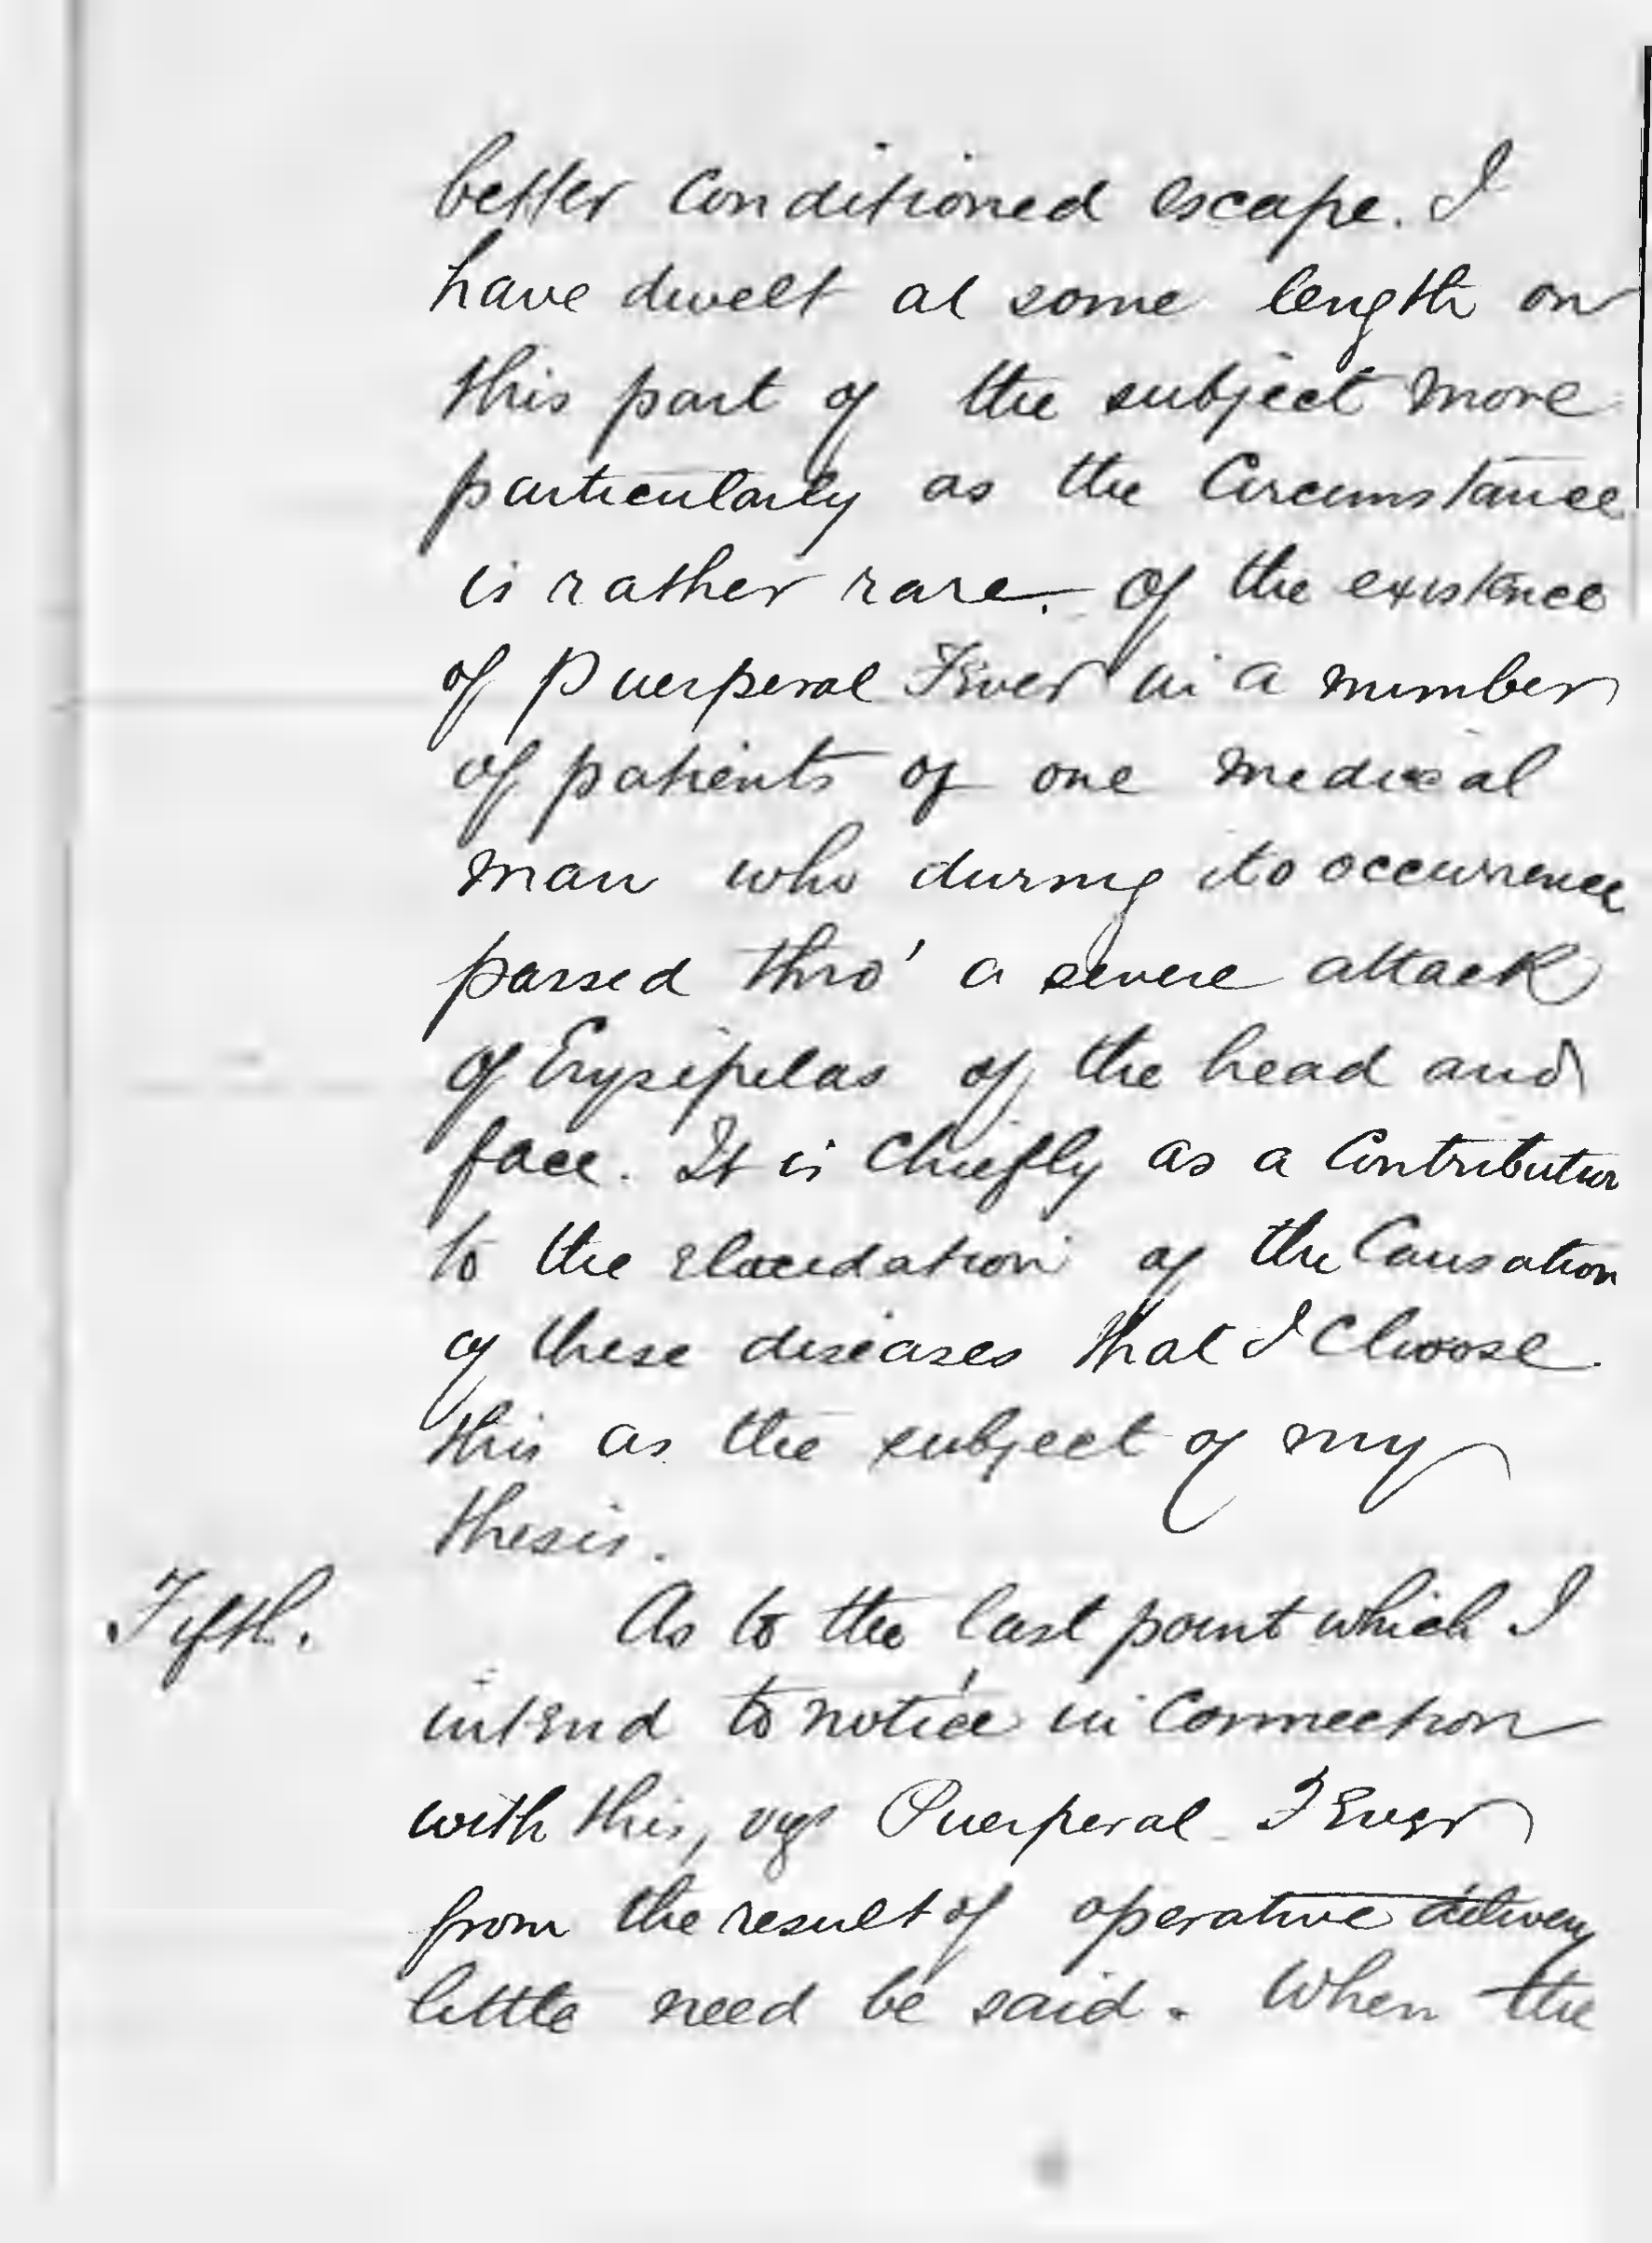 better conditioned escape. I
have dwelt at some length on
this part of the subject more
particularly as the Circumstance
is rather rare. Of the existence
of Puerperal Fever in a number
of patients of one medical
man who during its occurrence
passed thro' a severe attack
of Erysipelas of the head and
face. It is chiefly as a Contribution
to the elucidation of the Causation
of these diseases that I Choose
this as the subject of my
thesis.
Fifth. As to the last point which I
intend to notice in Connection
with this, viz Puerperal Fever
from the result of operative delivery
little need be said. When the